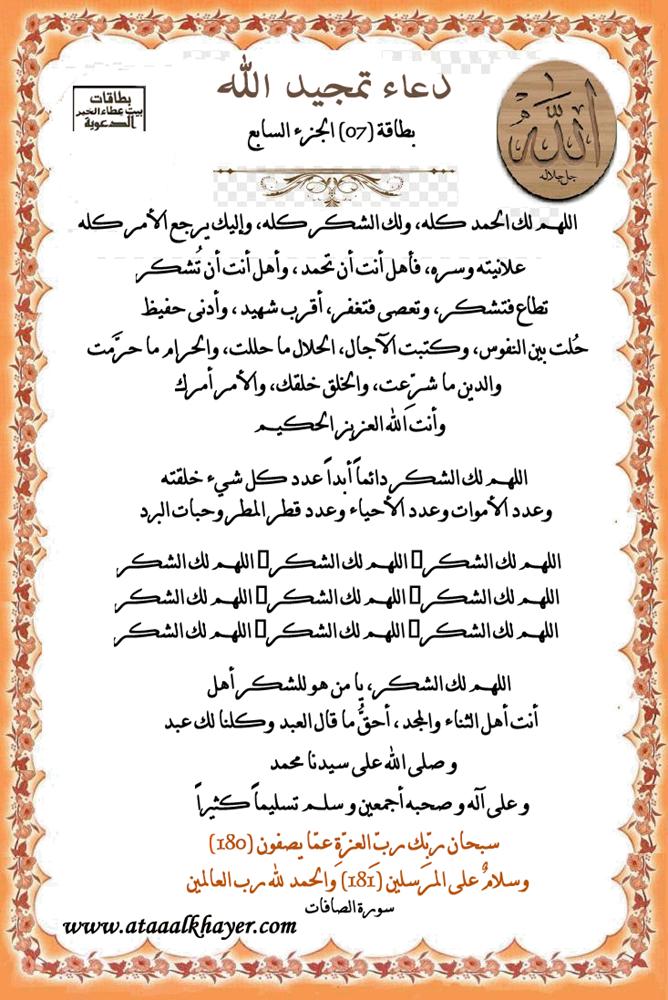 دعاء تمجيد الله
بطاقات
بيت عطاء الخير
الدعوية
الله
جل جلاله
بطاقة (07) الجزء السابع
اللهم لك الحمد كله، ولك الشكر كله، وإليك يرجع الأمر كله
علانيته وسره، فأهل أنت أن تحمد، وأهل أنت أن تُشكر
تطاع فتشكر، وتعصى فتغفر، أقرب شهيد، وأدنى حفيظ
حُلت بين النفوس، وكتبت الآجال، الحلال ما حللت، والحرام ما حرَّمت
والدين ما شرّعت، والخلق خلقك، والأمر أمرك
وأنت الله العزيز الحكيم
اللهم لك الشكر دائماً أبداً عدد كل شيء خلقته
وعدد الأموات وعدد الأحياء وعدد قطر المطر وحبات البرد
اللهم لك الشكر اللهم لك الشكر اللهم لك الشكر
اللهم لك الشكر اللهم لك الشكر اللهم لك الشكر
اللهم لك الشكر اللهم لك الشكر اللهم لك الشكر
اللهم لك الشكر، يا من هو للشكر أهل
أنت أهل الثناء والمجد، أحقُّ ما قال العبد وكلنا لك عبد
و صلى الله على سيدنا محمد
و على آله و صحبه أجمعين و سلم تسليماً كثيراً
سبحان ربّك ربّ العزّة عمّا يصفون (180)
وسلامٌ على المرسلين (181) والحمد لله رب العالمين
سورة الصافات
www.ataaalkhayer.com